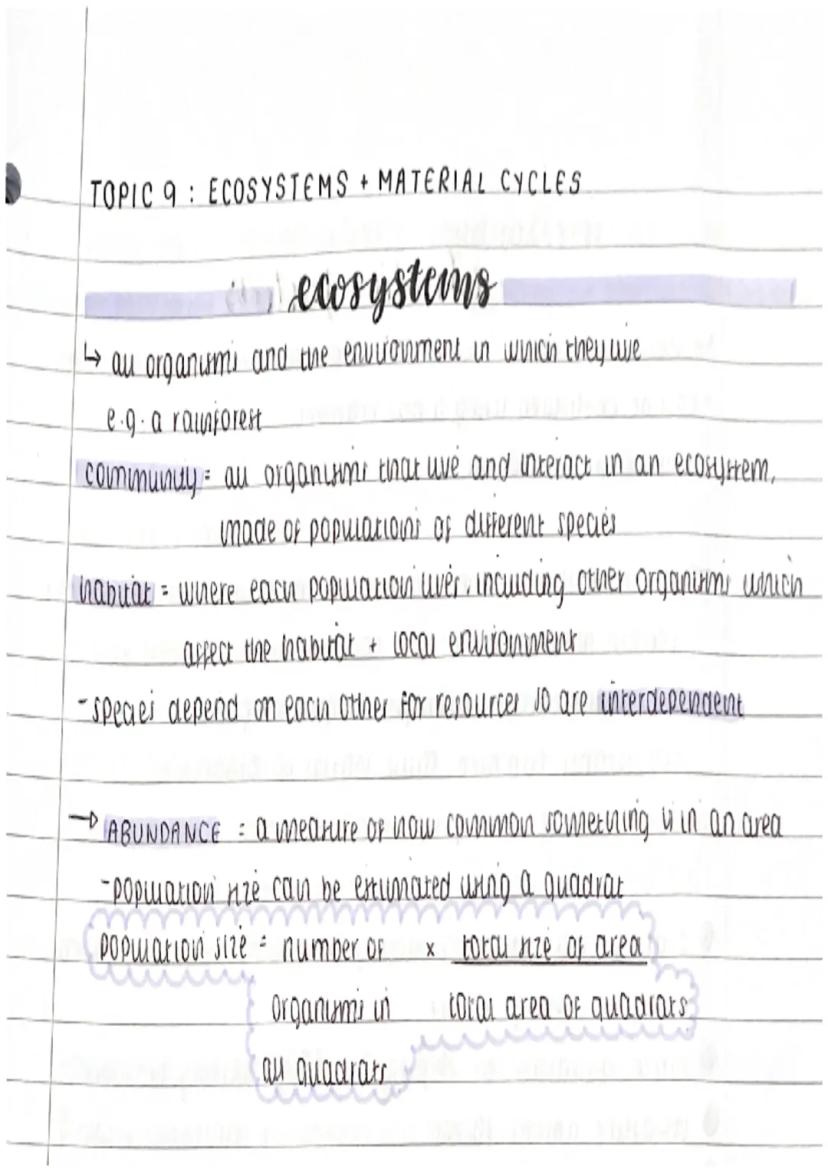 TOPIC 9 : ECOSYSTEMS + MATERIAL CYCLES
ecosystems
↳ all organisms and the environment in which they live
e.g. a rainforest
community = all organisms that live and interact in an ecosystem,
made of populations of different species
habitat = where each population lives, including other organisms which
affect the habitat + local environment
- species depend on each other for resources so are interdependent
→ ABUNDANCE = a measure of how common something is in an area
- population size can be estimated using a quadrat
population size = number of × total size of area
organisms in total area of quadrats
all quadrats